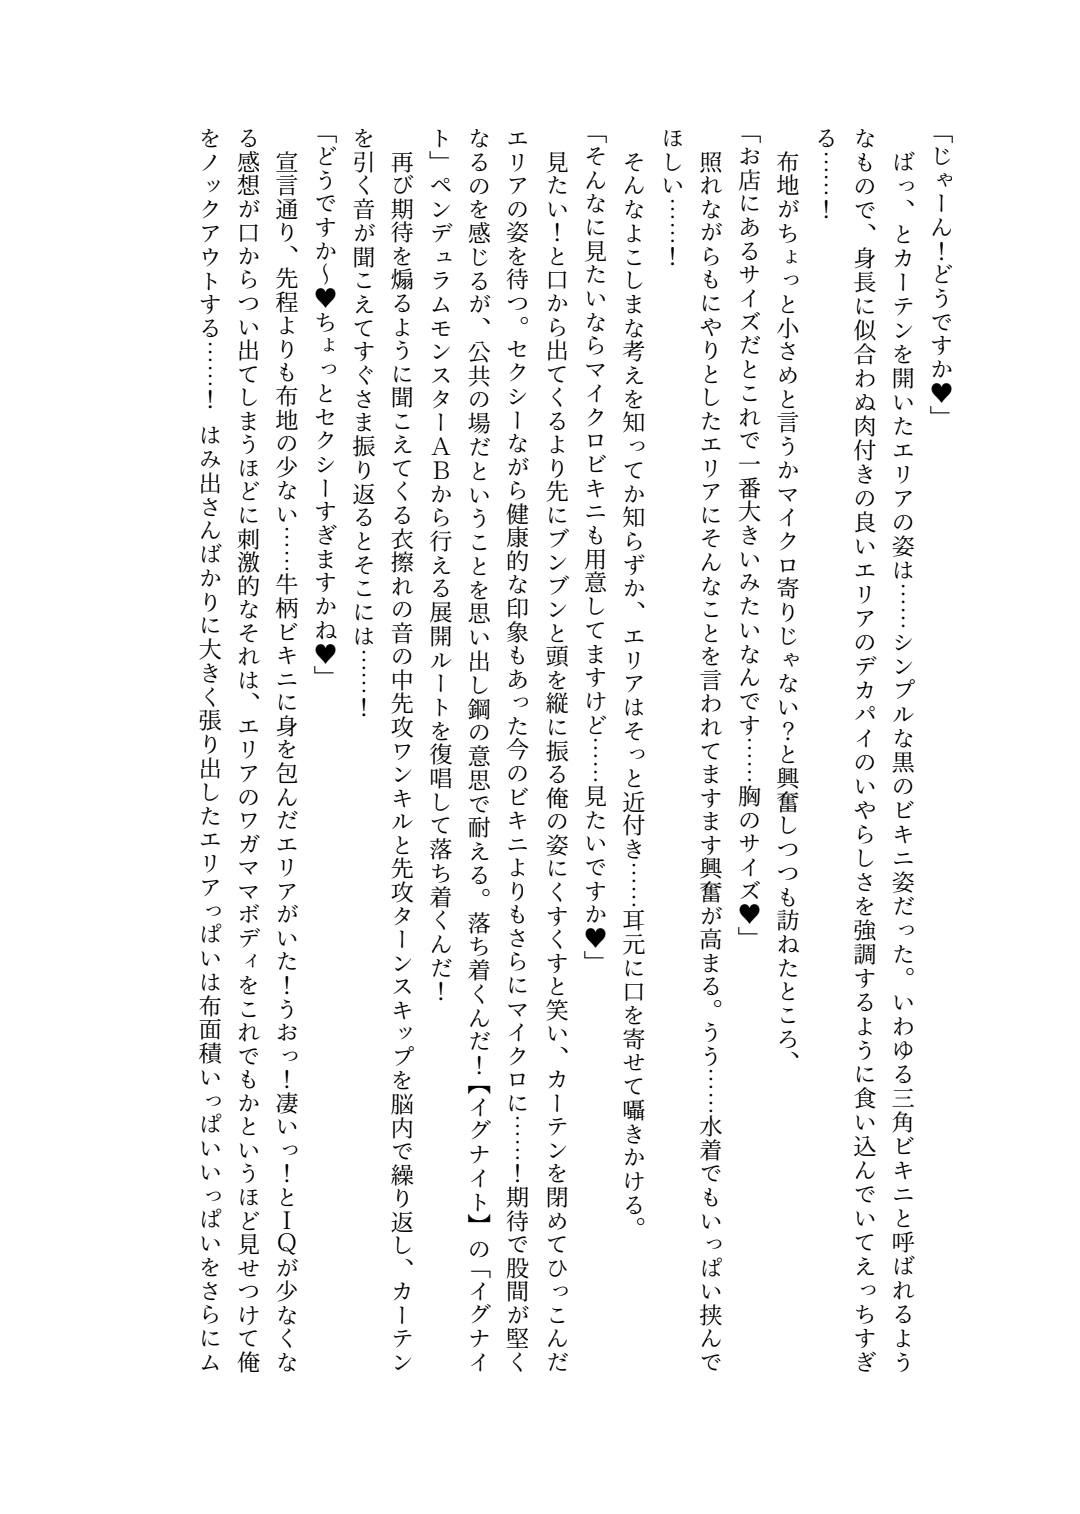 「じゃーん！どうですか♥」
　ばっ、とカーテンを開いたエリアの姿は……シンプルな黒のビキニ姿だった。いわゆる三角ビキニと呼ばれるよう
なもので、身長に似合わぬ肉付きの良いエリアのデカパイのいやらしさを強調するように食い込んでいてえっちすぎ
る……！
　布地がちょっと小さめと言うかマイクロ寄りじゃない？と興奮しつつも訪ねたところ、
「お店にあるサイズだとこれで一番大きいみたいなんです……胸のサイズ♥」
　照れながらもにやりとしたエリアにそんなことを言われてますます興奮が高まる。うう……水着でもいっぱい挟んで
ほしい……！
　そんなよこしまな考えを知ってか知らずか、エリアはそっと近付き……耳元に口を寄せて囁きかける。
「そんなに見たいならマイクロビキニも用意してますけど……見たいですか♥」
　見たい！と口から出てくるより先にブンブンと頭を縦に振る俺の姿にくすくすと笑い、カーテンを閉めてひっこんだ
エリアの姿を待つ。セクシーながら健康的な印象もあった今のビキニよりもさらにマイクロに……！期待で股間が堅く
なるのを感じるが、公共の場だということを思い出し鋼の意思で耐える。落ち着くんだ！【イグナイト】の「イグナイ
ト」ペンデュラムモンスターＡＢから行える展開ルートを復唱して落ち着くんだ！
　再び期待を煽るように聞こえてくる衣擦れの音の中先攻ワンキルと先攻ターンスキップを脳内で繰り返し、カーテン
を引く音が聞こえてすぐさま振り返るとそこには……！
「どうですか～♥ちょっとセクシーすぎますかね♥」
　宣言通り、先程よりも布地の少ない……牛柄ビキニに身を包んだエリアがいた！うおっ！凄いっ！とＩＱが少なくな
る感想が口からつい出てしまうほどに刺激的なそれは、エリアのワガママボディをこれでもかというほど見せつけて俺
をノックアウトする……！ はみ出さんばかりに大きく張り出したエリアっぱいは布面積いっぱいいっぱいをさらにム